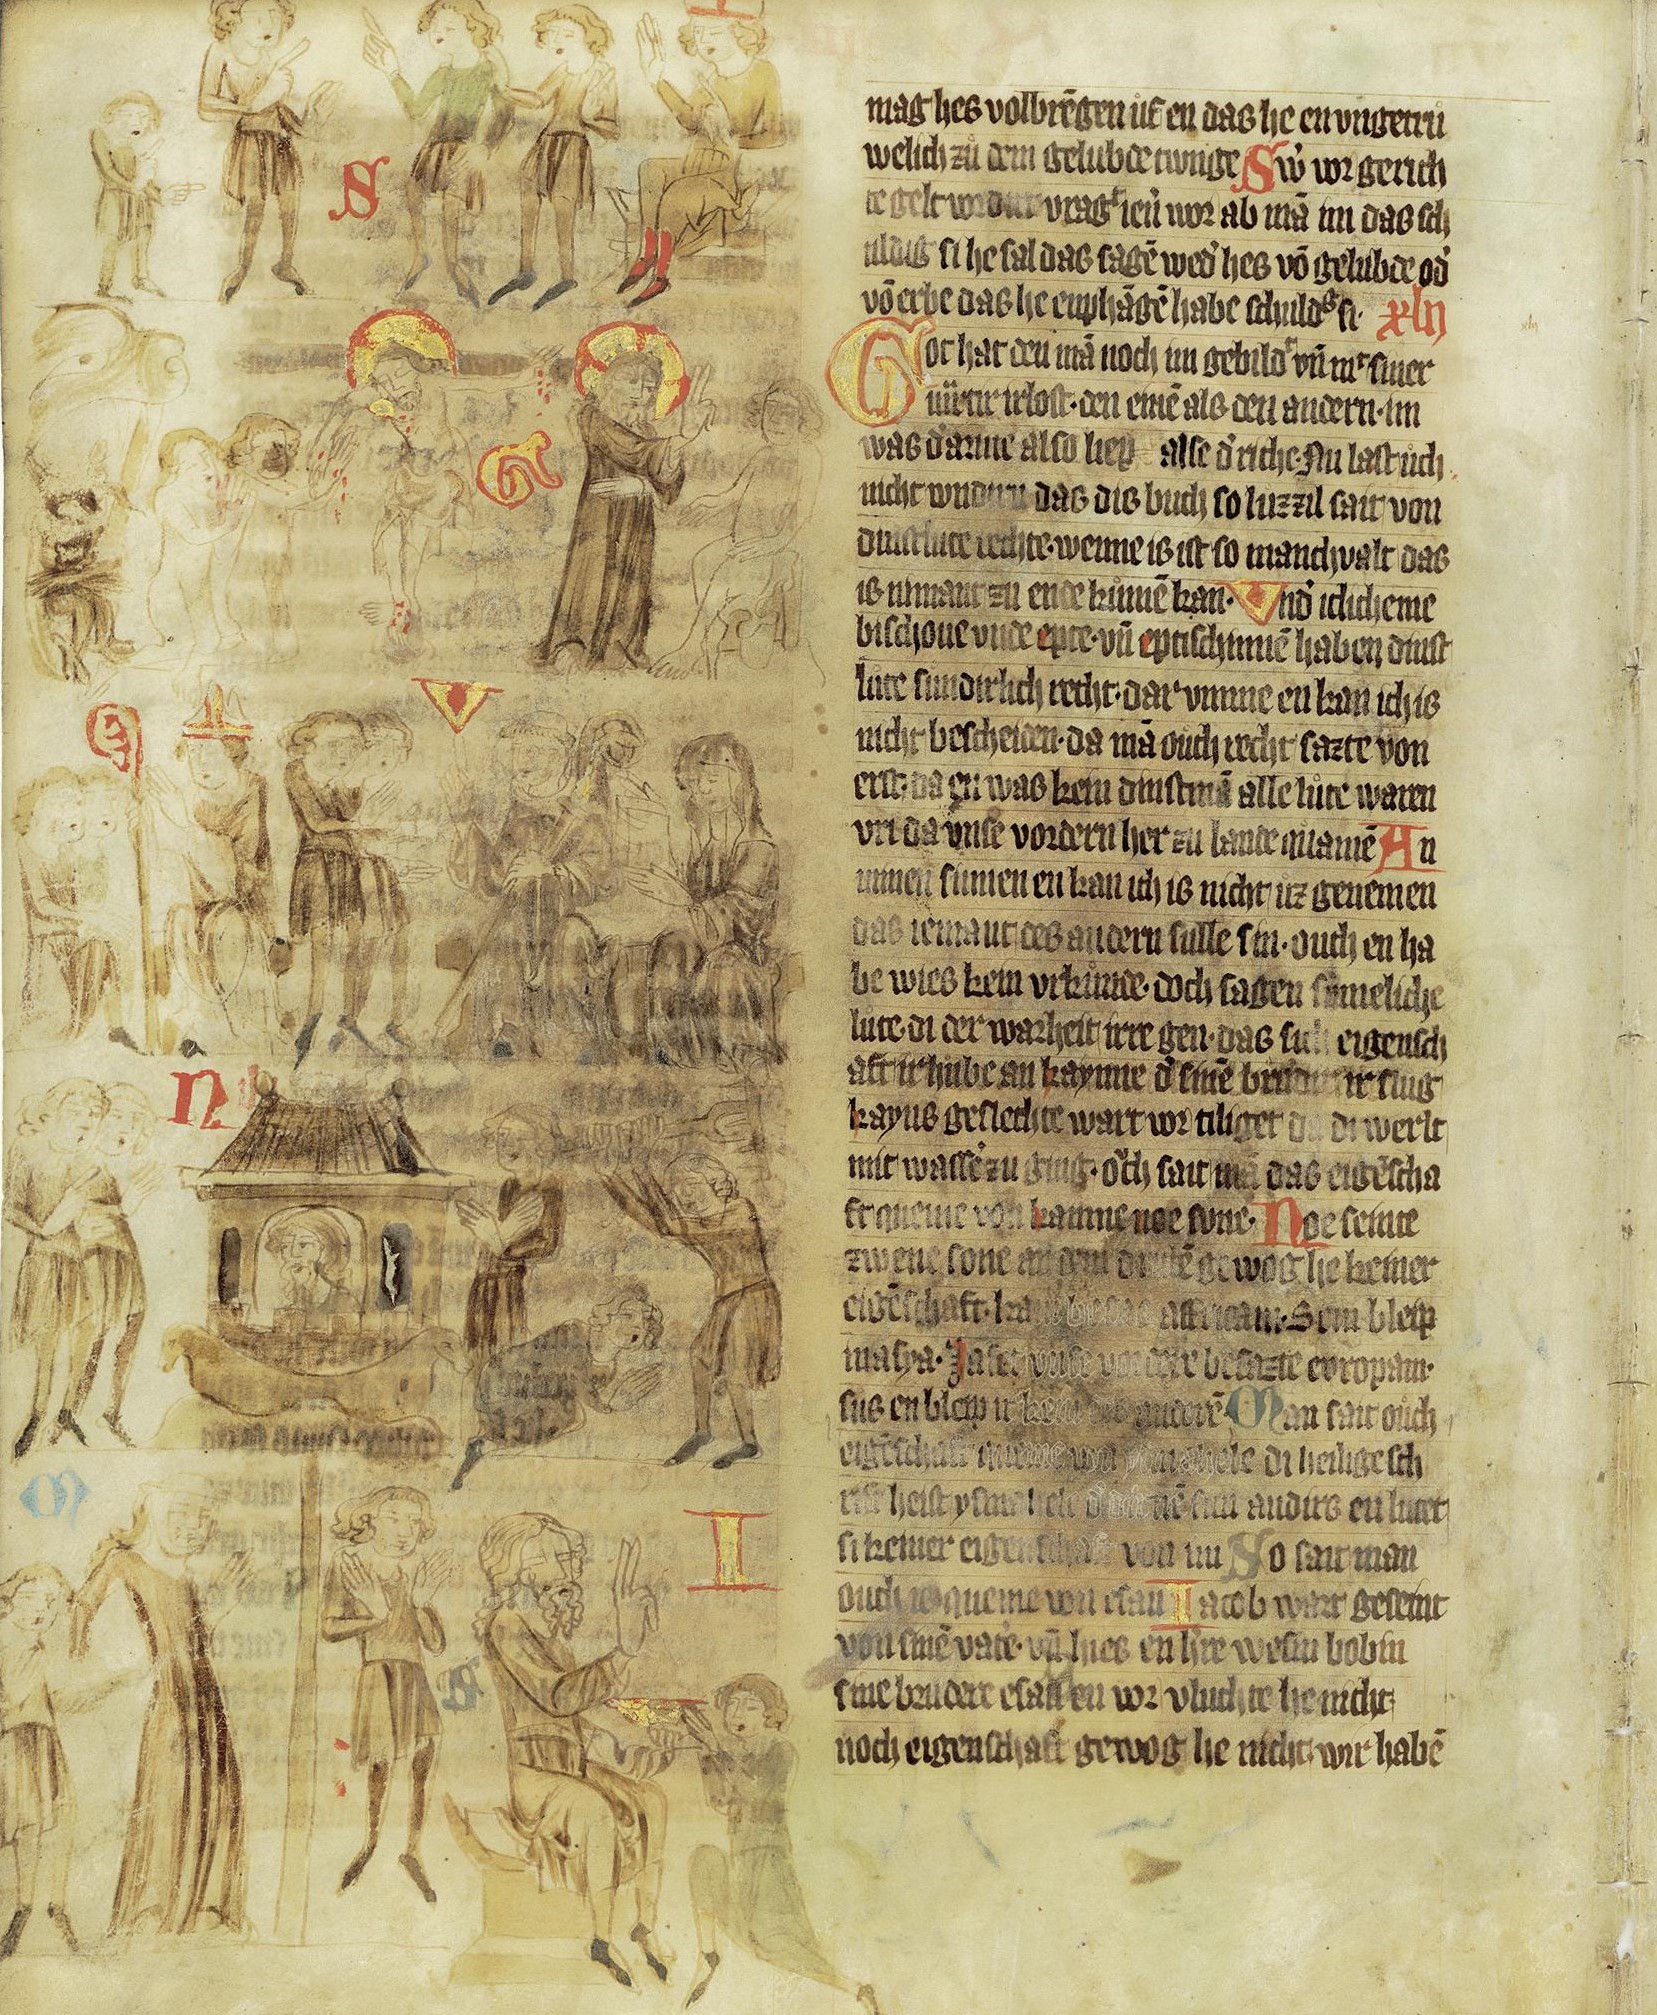 mag hes volbrēgen ūf en das he en vngetrů
welich zů dem gelubde twīge Sw' vor gerich
te gelt vordirt vragit ienir wor ab mā im das sch
uldig si he sal das sagē wed' hes vō gelubde od'
vō erbe das he enphāgē habe schuldig si. xlij
Got hat den mā noch im gebildet vn̄ mit siner
martir irlost. den einē als den andern. im
was d' arme also liep alse d' riche. Nu last ůch
nicht wndirn das dis buch so luzzil sait von
dinstlute rechte. wenne is ist so manchvalt das
is nimant zu ende kůmē kan. Vnd' iclicheme
bischoue vnde epte. vn̄ eptischinnē haben dinst
lůte sundirlich recht. dar vmme en kan ich is
nicht bescheiden. da mā ouch recht sazte von
erst. da en was kein dinstmā alle lůte waren
vri da vnse vordern her zu lande quamē An
minen sinnen en kan ich is nicht ůz genemen
das iemant des andern sulle sin. ouch en ha
be wies kein vrkůnde. doch sagen sůmeliche
lute. di der warheit irre gen. das sich eigensch
aft irhube an kaynne d' sinē brudir ir slug
kayns geslechte wart vor tiliget da di werlt
mit wass'e zu ging. och sait mā das eigēscha
ft queme von kamme noe sone. Noe seinte
zwene sone an dem drittē gewog he keiner
eigēschaft. kam besazte affricam. Sem bleip
in asya. Jafet vnse vordere besazte europam.
sus en bleip ir kein des anderē. Man sait ouch
eigēschaft queme von ysmahele di heilige sch
rift heist ysmahele d' dirnē sun andirs en lutet
si keiner eigenschaft von im So sait man
ouch is queme von esau Iacob wart geseint
von sinē vatē. vn̄ hies en h're wesin bobin
sine brudere esau en vor vluchte he nicht
noch eigenschaft gewog he nicht. wir habē
S
G
V
N
M
S
I